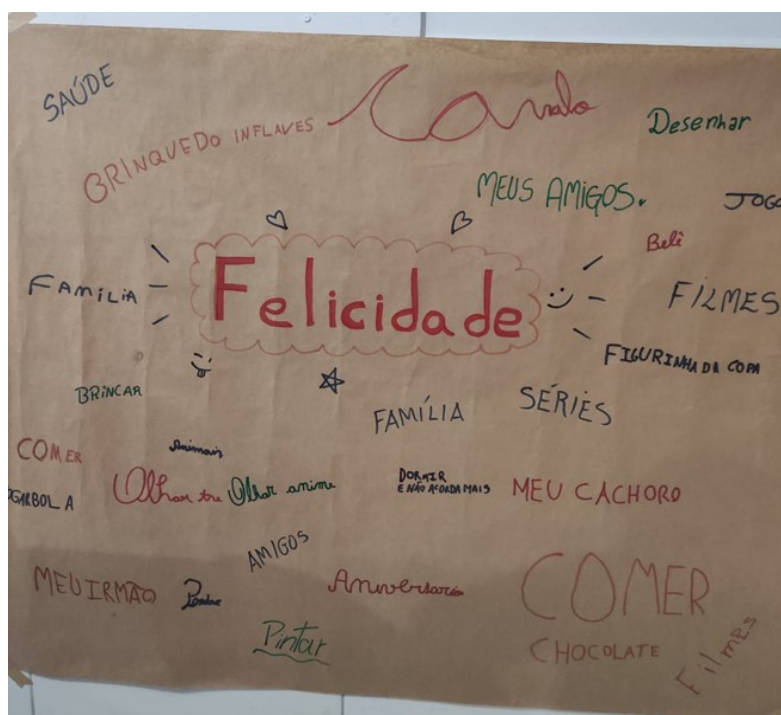 SAÚDE
BRINQUEDO INFLAVES
Cavalo
Desenhar
MEUS AMIGOS.
JOGO
Belê
FAMÍLIA
Felicidade
FILMES
FIGURINHA DA COPA
BRINCAR
FAMÍLIA
SÉRIES
COMER
Animais
OGAR BOL A
Olhar
Olhar anime
DORMIR
E NÃO ACORDA MAIS
MEU CACHORO
AMIGOS
MEU IRMÃO
Aniversario
COMER
CHOCOLATE
Pintar
Filmes